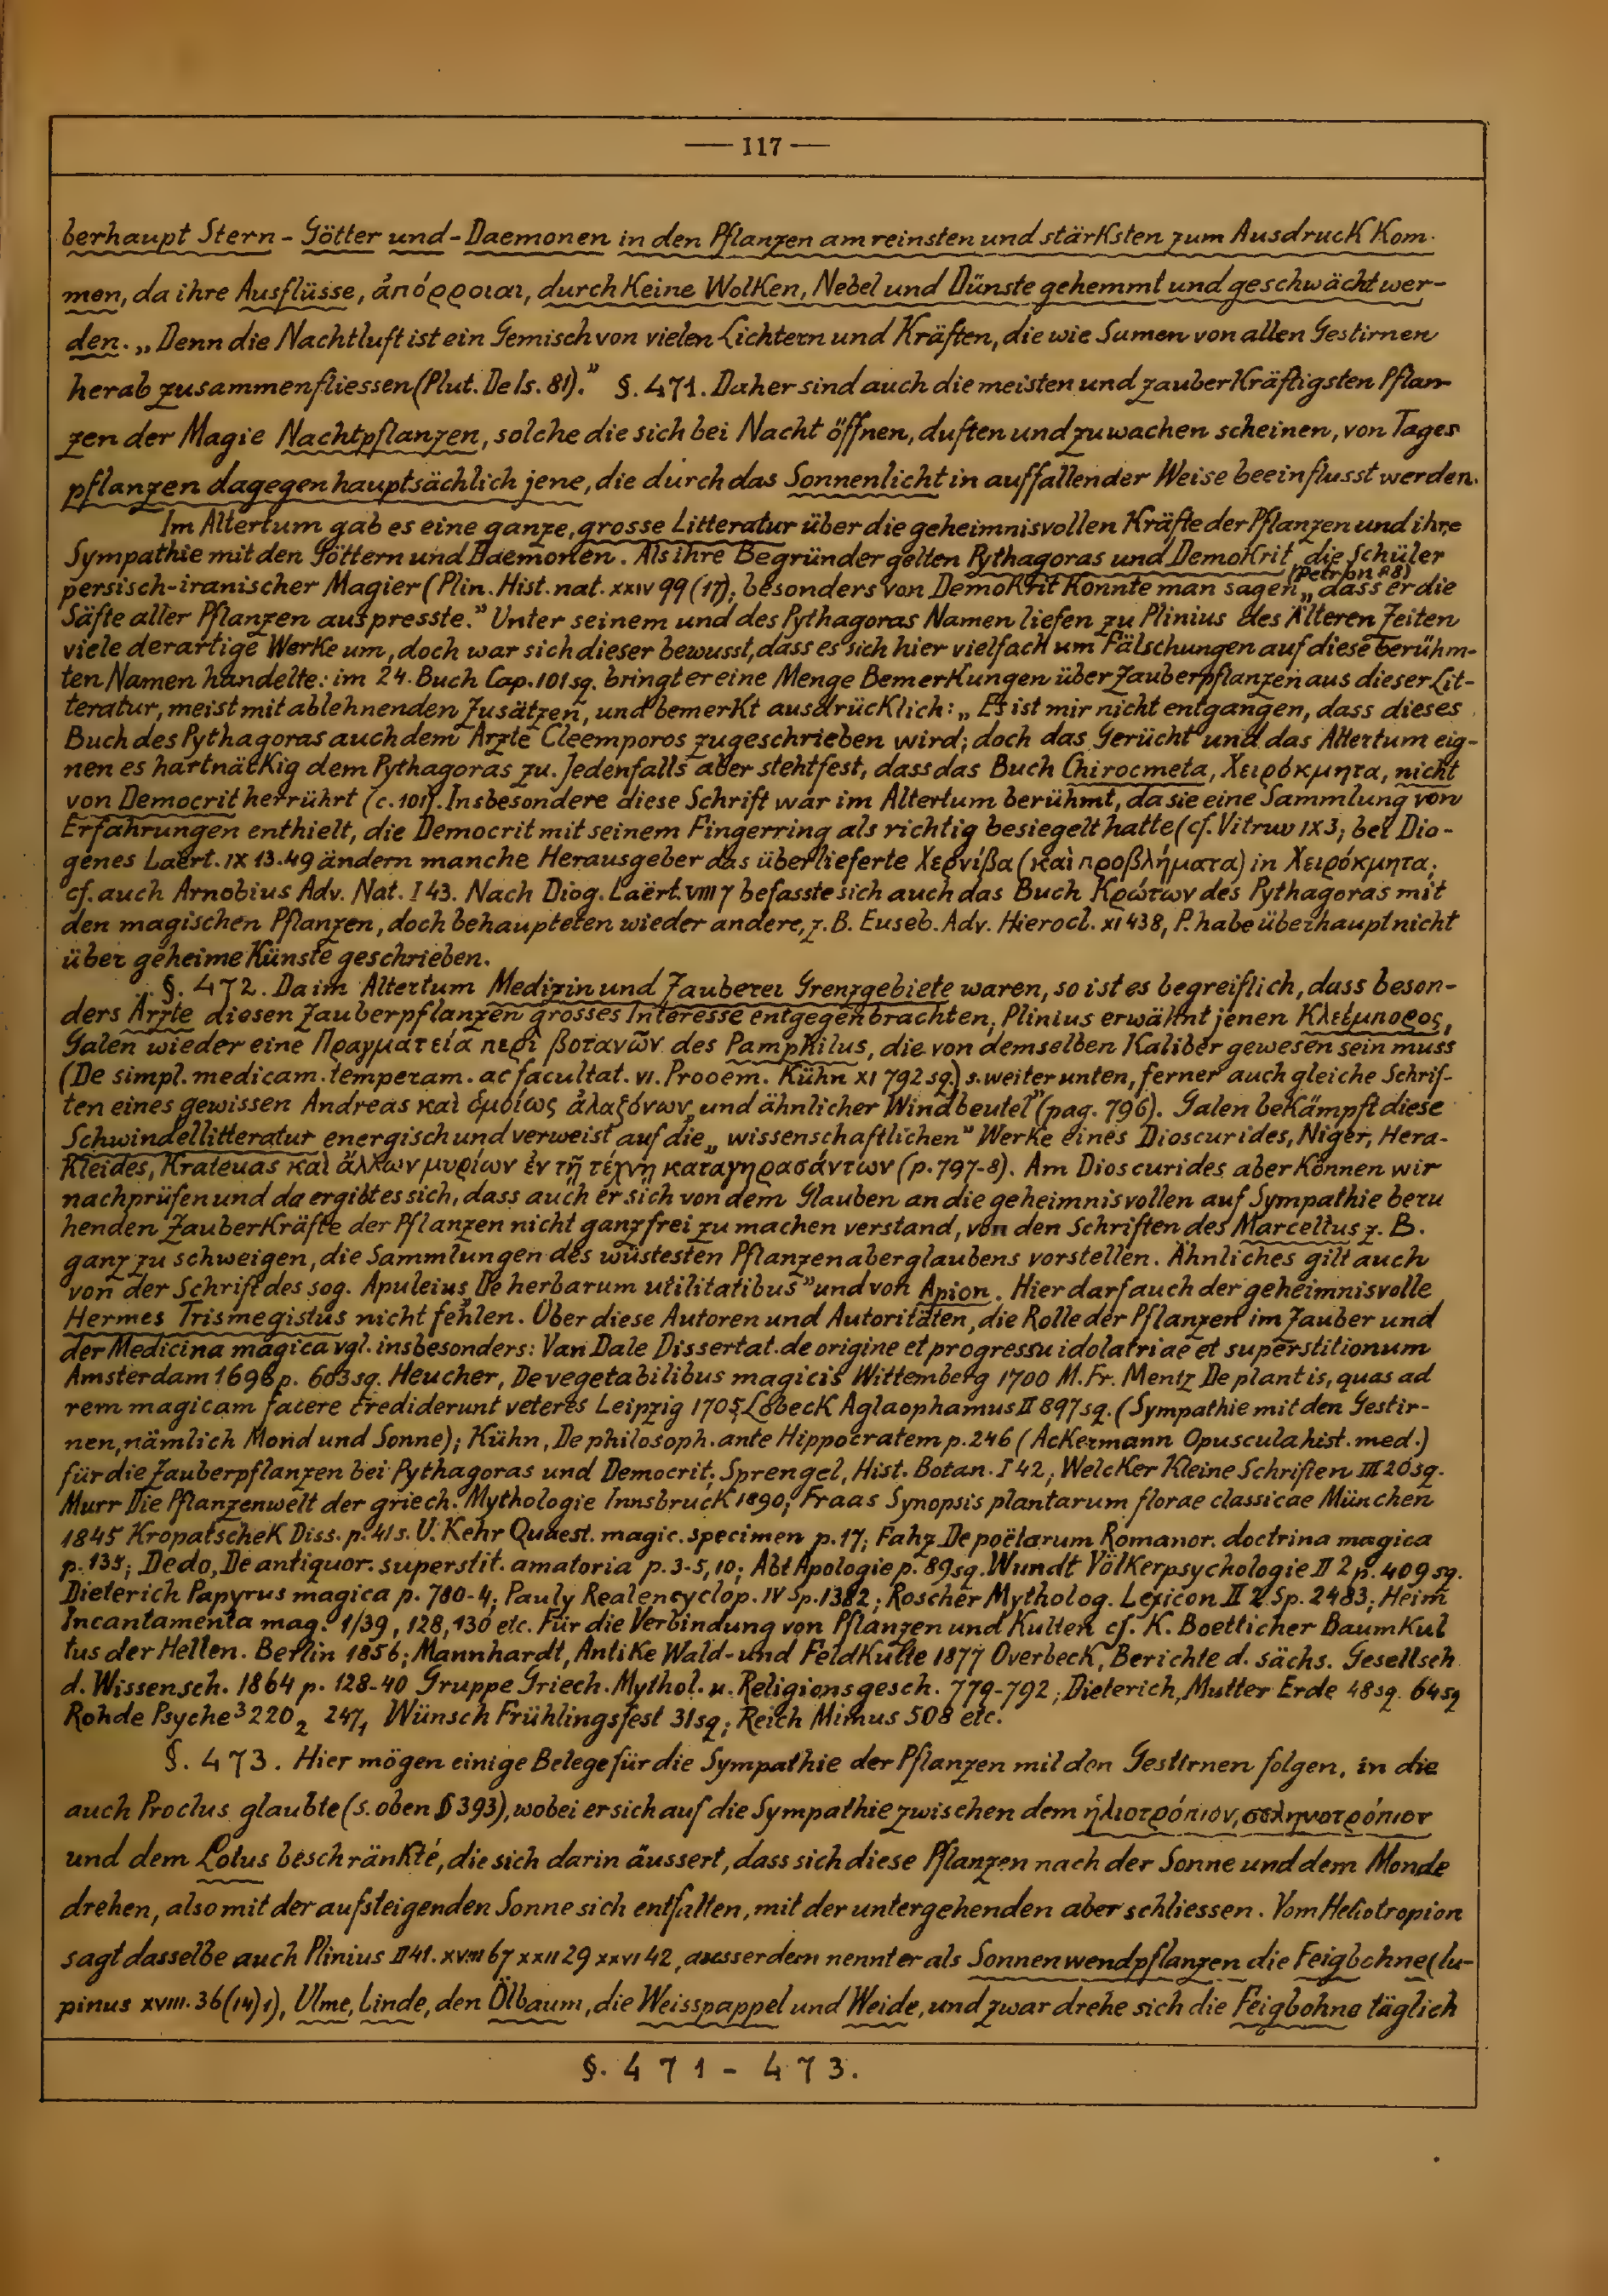 — 117 —
berhaupt Stern- Götter und-Daemonen in den Pflanzen am reinsten und stärksten zum Ausdruck kom-
men, da ihre Ausflüsse, ἀπόρροιαι, durch keine Wolken, Nebel und Dünste gehemmt und geschwächt wer-
den. „Denn die Nachtluft ist ein Gemisch von vielen Lichtern und Kräften, die wie Samen von allen Gestirnen
herab zusammenfliessen (Plut. De Is. 81).” §. 471. Daher sind auch die meisten und zauberkräftigsten Pflan-
zen der Magie Nachtpflanzen, solche die sich bei Nacht öffnen, duften und zu wachen scheinen, von Tages
pflanzen dagegen hauptsächlich jene, die durch das Sonnenlicht in auffallender Weise beeinflusst werden.
Im Altertum gab es eine ganze, grosse Litteratur über die geheimnisvollen Kräfte der Pflanzen und ihre
Sympathie mit den Göttern und Daemonen. Als ihre Begründer gelten Pythagoras und Demokrit, die Schüler
persisch-iranischer Magier (Plin. Hist. nat. XXIV 99 (17); besonders von Demokrit konnte man sagen „dass er die (Petron 88)
Säfte aller Pflanzen auspresste.” Unter seinem und des Pythagoras Namen liefen zu Plinius des Älteren Zeiten
viele derartige Werke um, doch war sich dieser bewusst, dass es sich hier vielfach um Fälschungen auf diese berühm-
ten Namen handelte: im 24. Buch Cap. 101 sq. bringt er eine Menge Bemerkungen über Zauberpflanzen aus dieser Lit-
teratur, meist mit ablehnenden Zusätzen, und bemerkt ausdrücklich: „Es ist mir nicht entgangen, dass dieses
Buch des Pythagoras auch dem Arzte Cleemporos zugeschrieben wird; doch das Gerücht und das Altertum eig-
nen es hartnäckig dem Pythagoras zu. Jedenfalls aber steht fest, dass das Buch Chirocmeta, Χειρόκμητα, nicht
von Democrit herrührt (c. 101). Insbesondere diese Schrift war im Altertum berühmt, da sie eine Sammlung von
Erfahrungen enthielt, die Democrit mit seinem Fingerring als richtig besiegelt hatte (cf. Vitruv IX 3; bei Dio-
genes Laërt. IX 13.49 ändern manche Herausgeber das überlieferte Χερνίβα (καὶ προβλήματα) in Χειρόκμητα;
cf. auch Arnobius Adv. Nat. I 43. Nach Diog. Laërt. VIII 7 befasste sich auch das Buch Κρότων des Pythagoras mit
den magischen Pflanzen, doch behaupteten wieder andere, z. B. Euseb. Adv. Hierocl. XI 438, P. habe überhaupt nicht
über geheime Künste geschrieben.
§. 472. Da im Altertum Medizin und Zauberei Grenzgebiete waren, so ist es begreiflich, dass beson-
ders Ärzte diesen Zauberpflanzen grosses Interesse entgegenbrachten; Plinius erwähnt jenen Κλεέμπορος,
Galen wieder eine Πραγματεία περὶ βοτανῶν des Pamphilus, die von demselben Kaliber gewesen sein muss
(De simpl. medicam. temperam. ac facultat. VI. Prooem. Kühn XI 792 sq.) s. weiter unten, ferner auch gleiche Schrif-
ten eines gewissen Andreas καὶ ὁμοίως ἀλαζόνων „und ähnlicher Windbeutel” (pag. 796). Galen bekämpft diese
Schwindellitteratur energisch und verweist auf die „wissenschaftlichen” Werke eines Dioscurides, Niger, Hera-
kleides, Krateuas καὶ ἄλλων μυρίων ἐν τῇ τέχνῃ καταγηρασάντων (p. 797-8). Am Dioscurides aber können wir
nachprüfen und da ergibt es sich, dass auch er sich von dem Glauben an die geheimnisvollen auf Sympathie beru
henden Zauberkräfte der Pflanzen nicht ganz frei zu machen verstand, von den Schriften des Marcellus z. B.
ganz zu schweigen, die Sammlungen des wüstesten Pflanzenaberglaubens vorstellen. Ähnliches gilt auch
von der Schrift des sog. Apuleius „De herbarum utilitatibus” und von Apion. Hier darf auch der geheimnisvolle
Hermes Trismegistus nicht fehlen. Über diese Autoren und Autoritäten, die Rolle der Pflanzen im Zauber und
der Medicina magica vgl. insbesonders: Van Dale Dissertat. de origine et progressu idolatriae et superstitionum
Amsterdam 1696 p. 603 sq. Heucher, De vegetabilibus magicis Wittemberg 1700 M. Fr. Mentz De plantis, quas ad
rem magicam facere crediderunt veteres Leipzig 1705; Lobeck Aglaophamus II 897 sq. (Sympathie mit den Gestir-
nen, nämlich Mond und Sonne); Kühn, De philosoph. ante Hippocratem p. 246 (Ackermann Opuscula hist. med.)
für die Zauberpflanzen bei Pythagoras und Democrit; Sprengel, Hist. Botan. I 42; Welcker Kleine Schriften III 20 sq.
Murr Die Pflanzenwelt der griech. Mythologie Innsbruck 1890; Fraas Synopsis plantarum florae classicae München
1845 Kropatschek Diss. p. 41 s. U. Kehr Quaest. magic. specimen p. 17; Fahz De poëtarum Romanor. doctrina magica
p. 135; Dedo, De antiquor. superstit. amatoria p. 3-5, 10; Abt Apologie p. 89 sq. Wundt Völkerpsychologie II 2 p. 409 sq.
Dieterich Papyrus magica p. 780-4; Pauly Realencyclop. IV Sp. 1382; Roscher Mytholog. Lexicon II 2 Sp. 2483; Heim
Incantamenta mag. 1/39, 128, 130 etc. Für die Verbindung von Pflanzen und Kulten cf. K. Boetticher Baumkul
tus der Hellen. Berlin 1856; Mannhardt, Antike Wald- und Feldkulte 1877 Overbeck, Berichte d. sächs. Gesellsch
d. Wissensch. 1864 p. 128-40 Gruppe Griech. Mythol. u. Religionsgesch. 779-792; Dieterich, Mutter Erde 48 sq. 64 sq
Rohde Psyche³ 220₂ 247₁ Wünsch Frühlingsfest 31 sq; Reich Mimus 508 etc.
§. 473. Hier mögen einige Belege für die Sympathie der Pflanzen mit den Gestirnen folgen, in die
auch Proclus glaubte (s. oben § 393), wobei er sich auf die Sympathie zwischen dem ἡλιοτρόπιον, σεληνοτρόπιον
und dem Lotus beschränkte, die sich darin äussert, dass sich diese Pflanzen nach der Sonne und dem Monde
drehen, also mit der aufsteigenden Sonne sich entfalten, mit der untergehenden aber schliessen. Vom Heliotropion
sagt dasselbe auch Plinius II 41. XVIII 67 XXII 29 XXVI 42, ausserdem nennt er als Sonnenwendpflanzen die Feigbohne (lu-
pinus XVIII. 36 (14) 1), Ulme, Linde, den Ölbaum, die Weisspappel und Weide, und zwar drehe sich die Feigbohne täglich
§. 471 - 473.